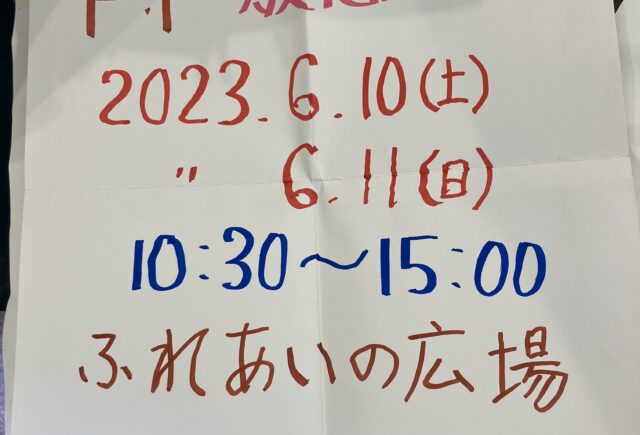 2023.6.10(土)
〃 6.11(日)
10:30～15:00
ふれあいの広場